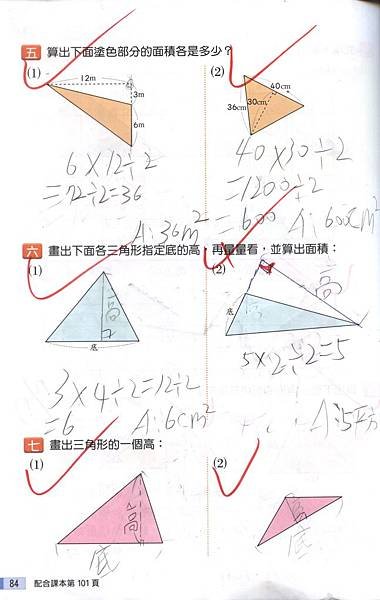 五 算出下面塗色部分的面積各是多少？
(1)
12m
3m
6m
6×12÷2
=72÷2=36
A:36m²
(2)
40cm
36cm
30cm
40×30÷2
=1200÷2
=600 A:600cm²
六 畫出下面各三角形指定底的高，再量量看，並算出面積：
(1)
高
底
3×4÷2=12÷2
=6 A:6cm²
(2)
高
底
5×2÷2=5
A:5平方
七 畫出三角形的一個高：
(1)
高
底
(2)
高
底
84 配合課本第101頁